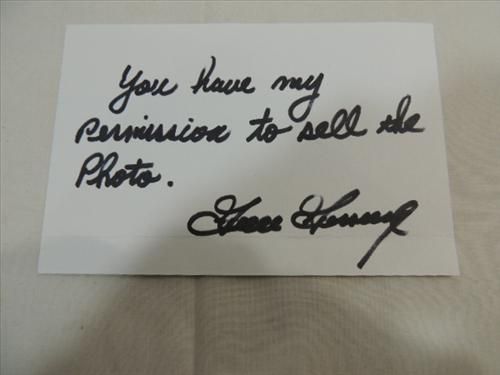 You have my
Permission to sell the
Photo.